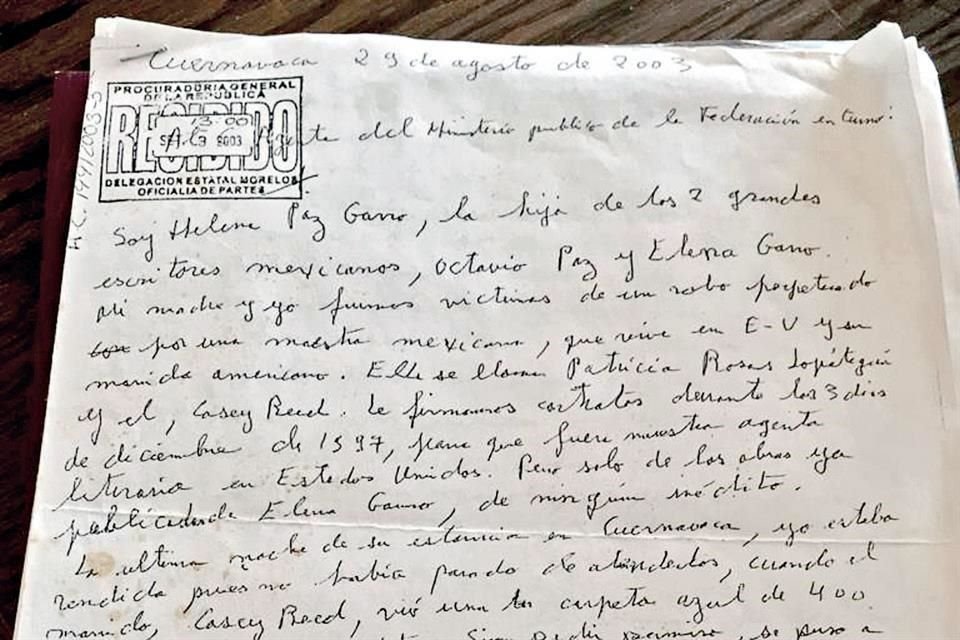 Cuernavaca 29 de agosto de 2003
PROCURADURIA GENERAL
DE LA REPUBLICA
RECIBIDO
13:00
SEP 3 2003
DELEGACION ESTATAL MORELOS
OFICIALIA DE PARTES
A.C. 144/2003-S
Al C. Agente del Ministerio publico de la Federación en turno:
Soy Helena Paz Garro, la hija de los 2 grandes
escritores mexicanos, Octavio Paz y Elena Garro.
Mi madre y yo fuimos victimas de un robo perpetrado
por una maestra mexicana, que vive en E-V y su
marido americano. Ella se llama Patricia Rosas Lopátegui
y el, Casey Reed. Le firmamos contratos durante los 3 dias
de diciembre de 1997, para que fuera nuestra agenta
literaria en Estados Unidos. Pero solo de las obras ya
publicadas de Elena Garro, de ningún inédito.
La ultima noche de su estancia en Cuernavaca, yo estaba
rendida pues no habia parado de atenderlos, cuando el
marido, Casey Reed, vió una carpeta azul de 400
Sin pedir permiso, se puso a